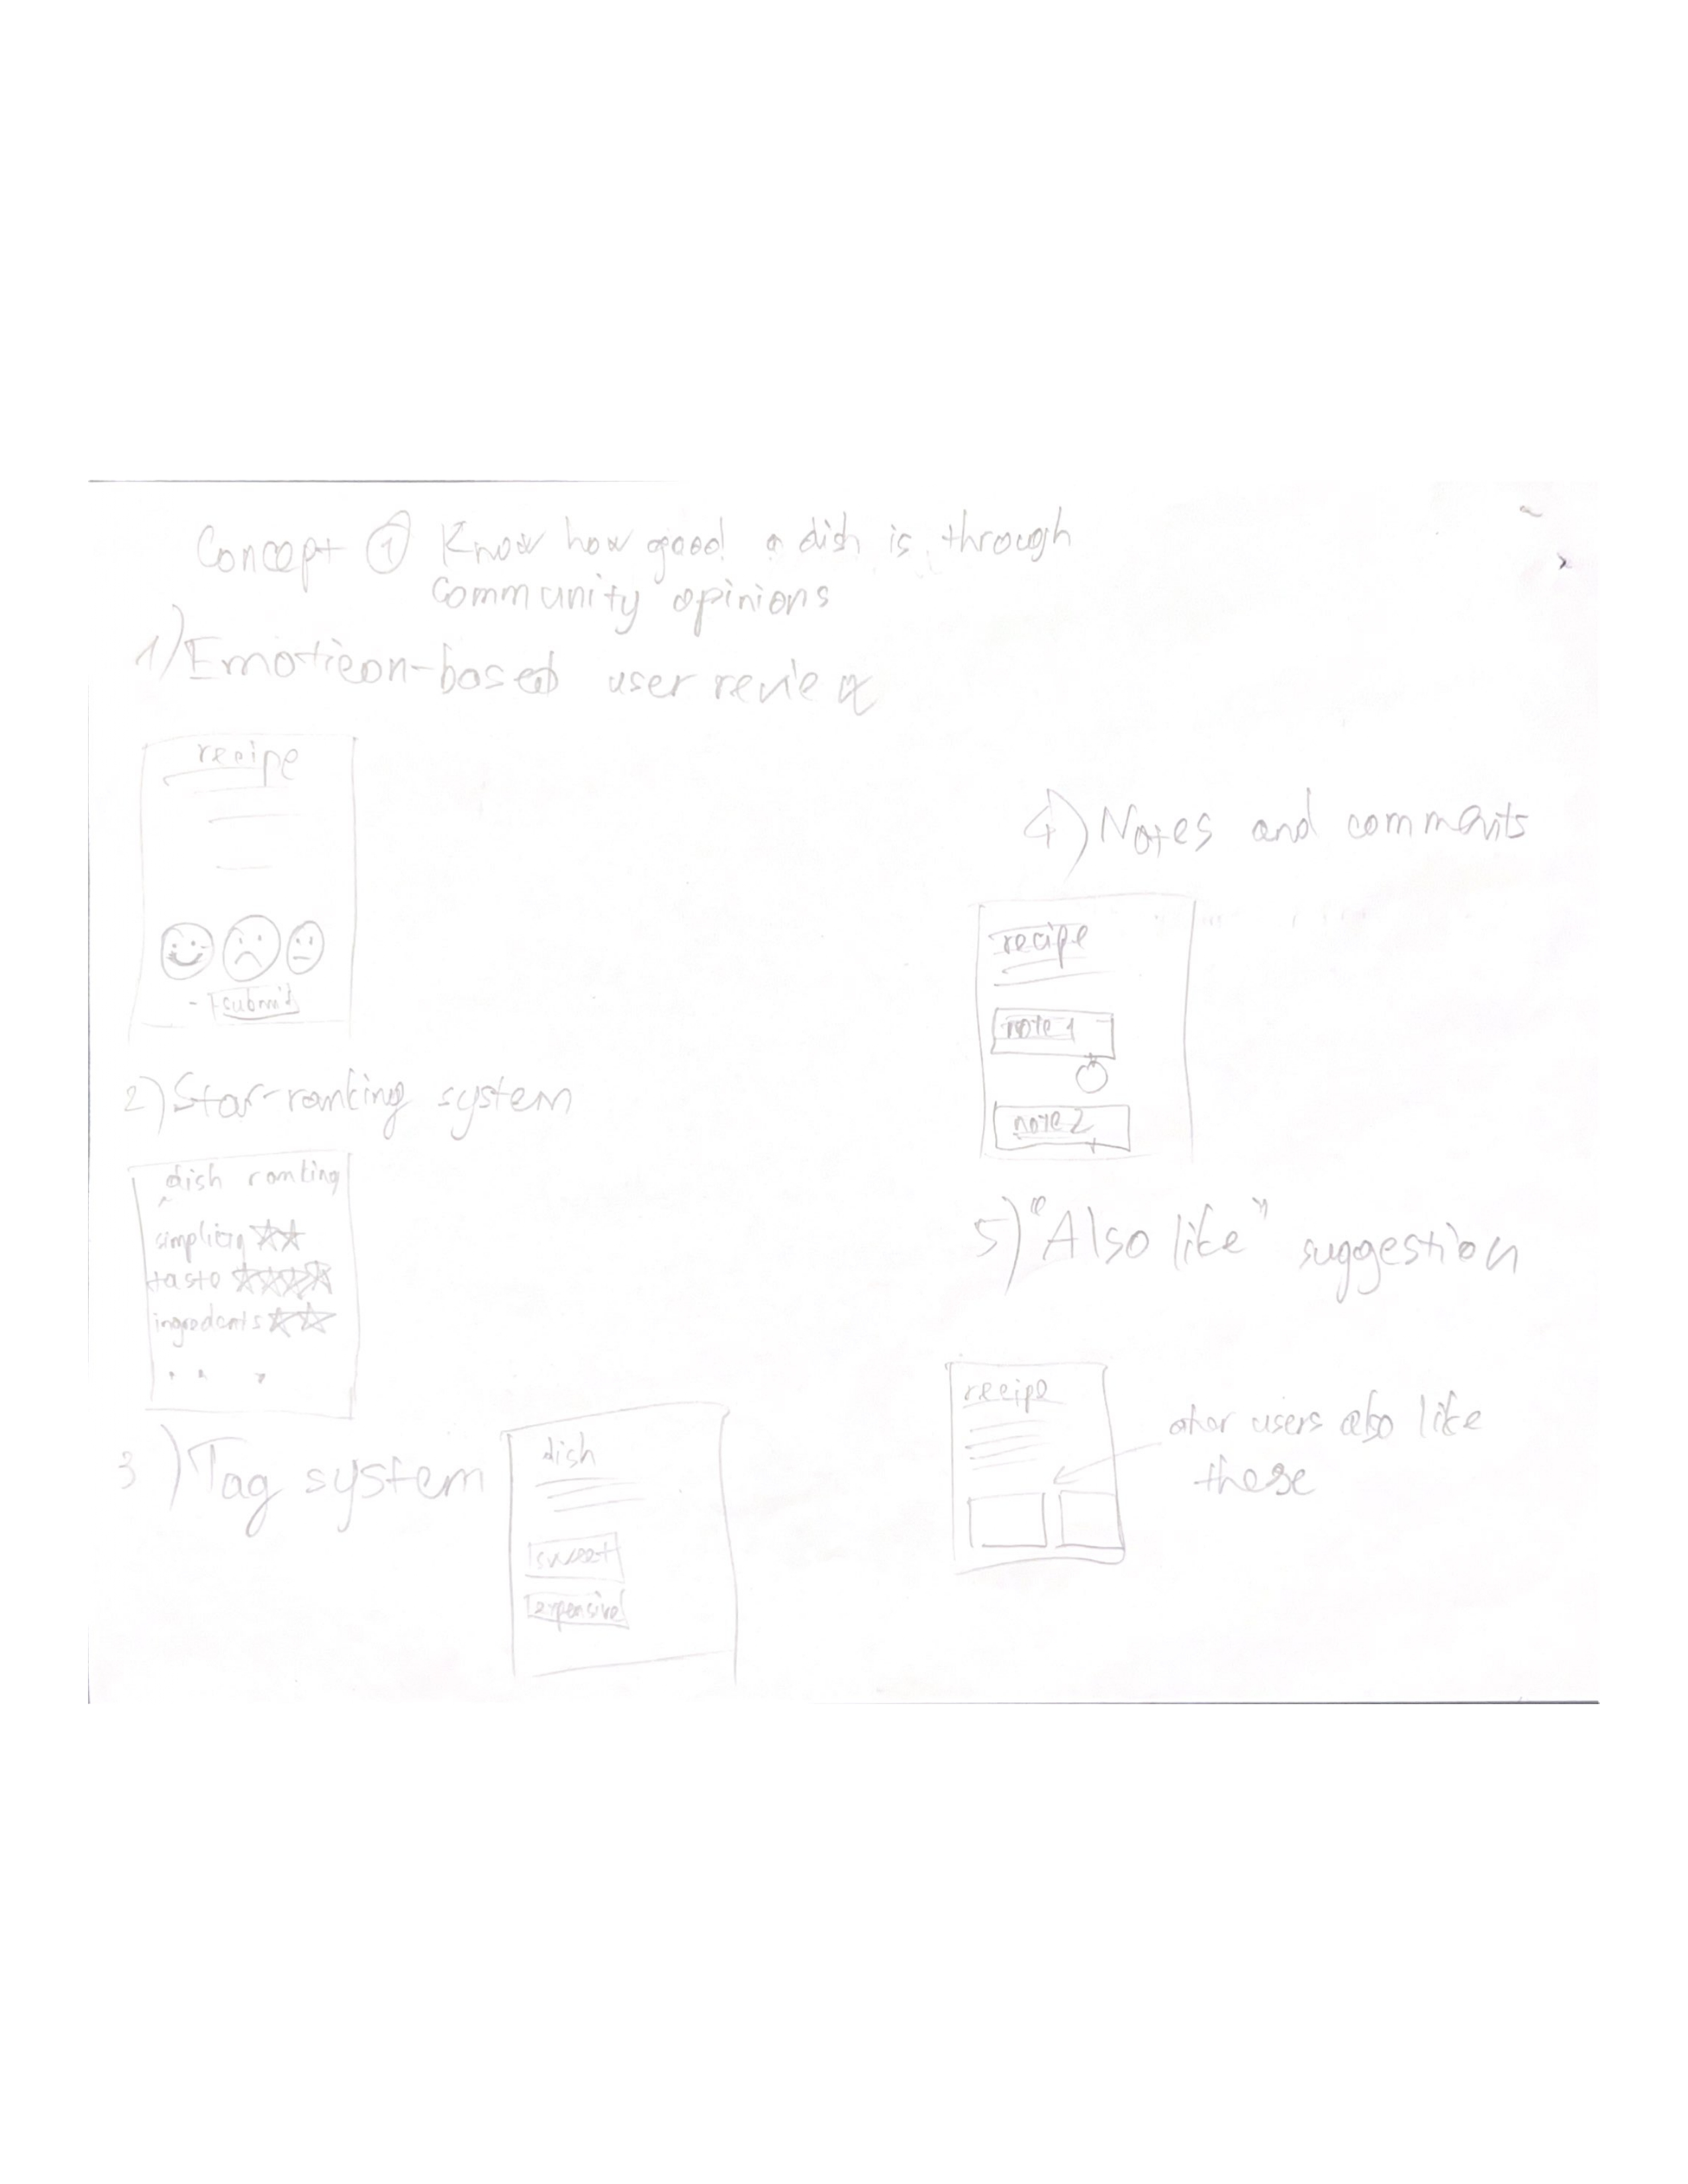 Concept ① Know how good a dish is through
community opinions
1) Emoticon-based user review
recipe
submit
2) Star-ranking system
dish ranking
simplicity
taste
ingredents
3) Tag system
dish
sweet
expensive
4) Notes and comments
recipe
note 1
note 2
5) "Also like" suggestion
recipe
other users also like
these